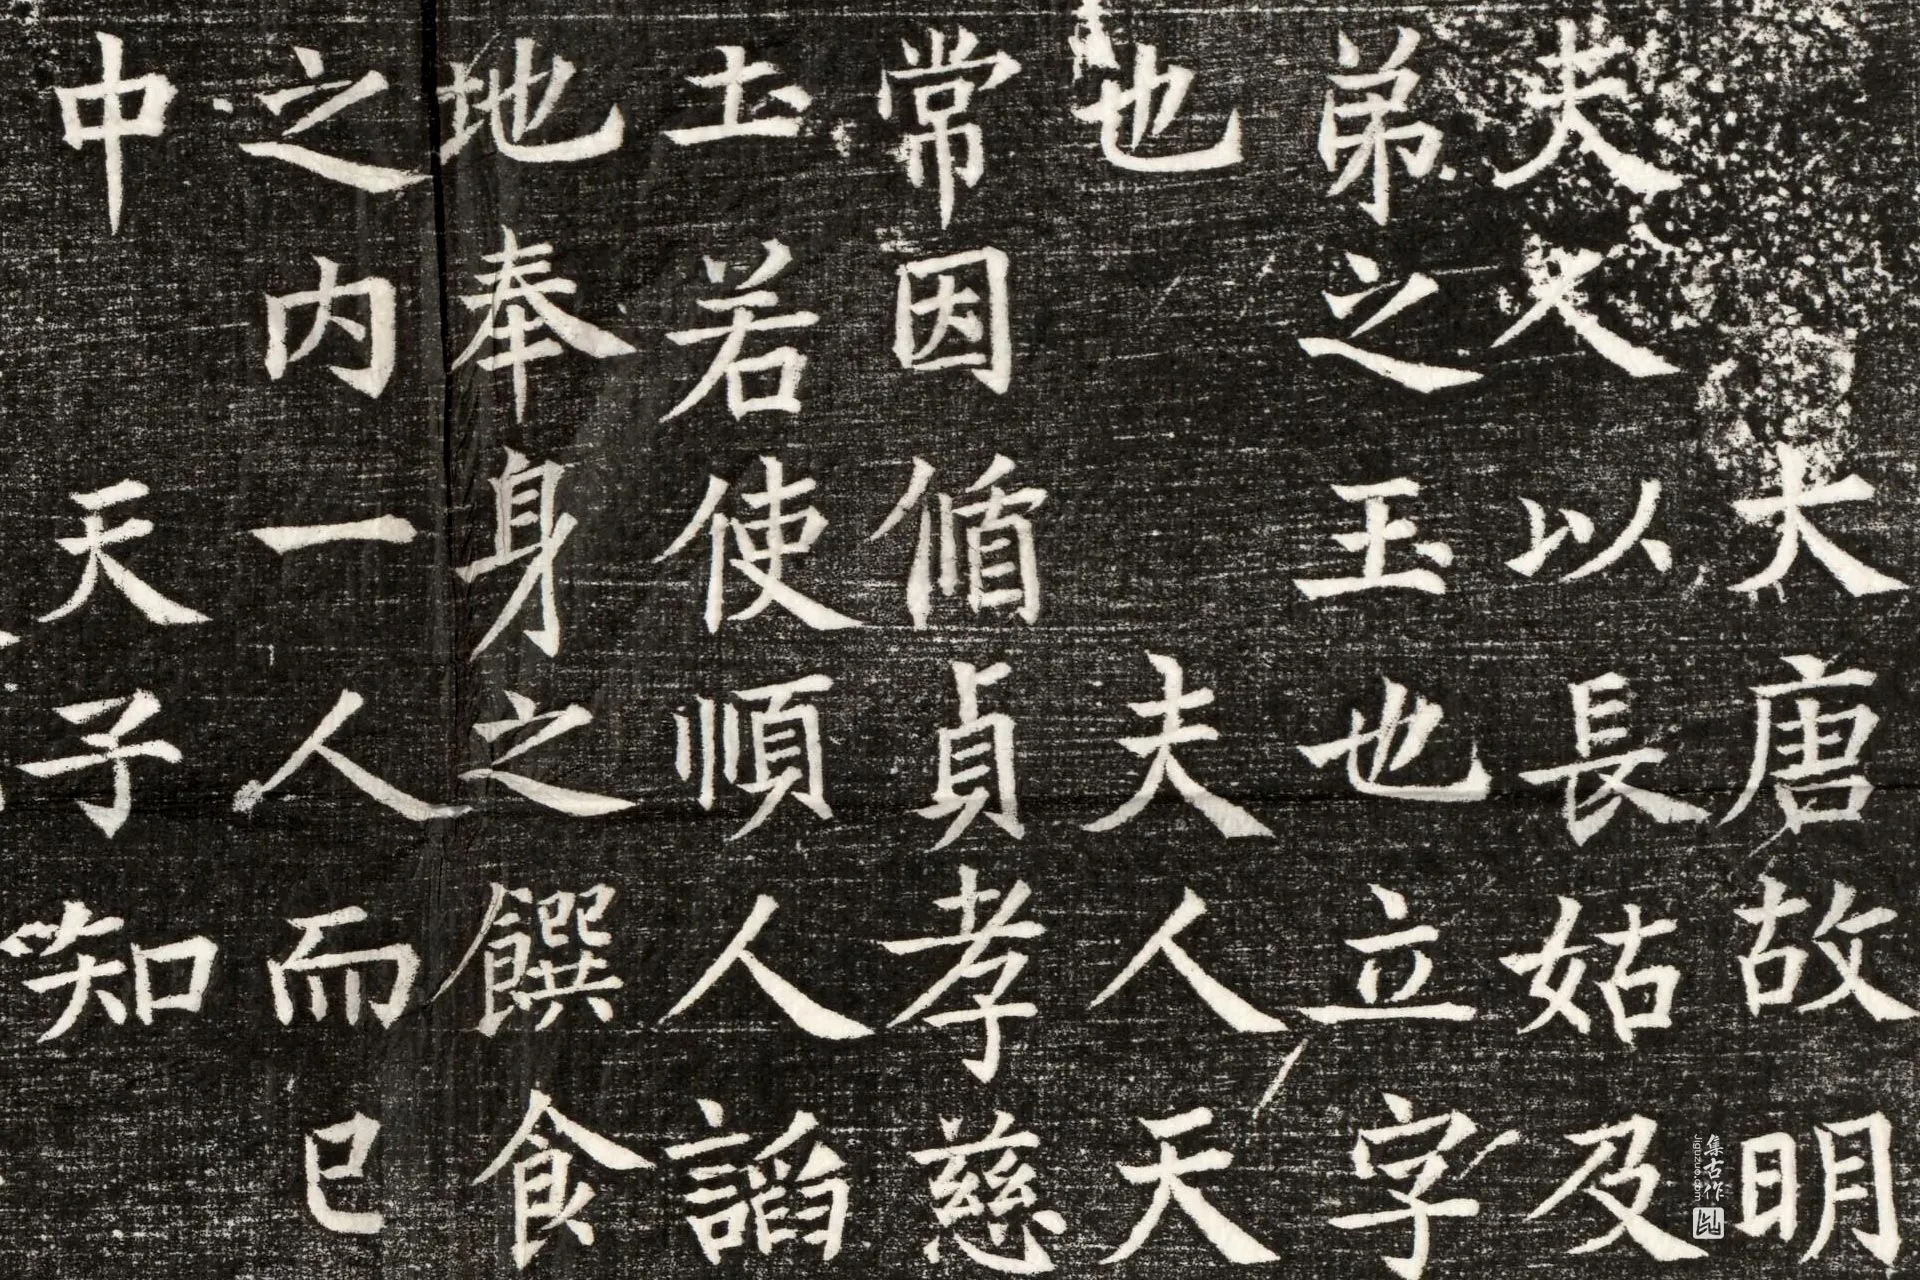 大唐故明
夫以長姑及
弟之玉也立字
也 夫人天
常因偱貞孝慈
圡若使順人謟
地奉身之饌食
之内一人而已
中 天子知
集古作
jiguzuo.com